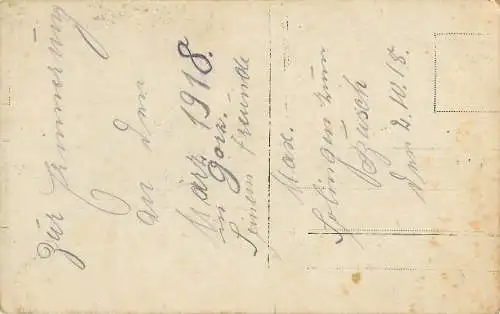 Zur Erinnerung
an den
März 1918.
in Gorz.
Seinem Freunde
Max.
Solingen zum
Busch
Den 2.10.18.